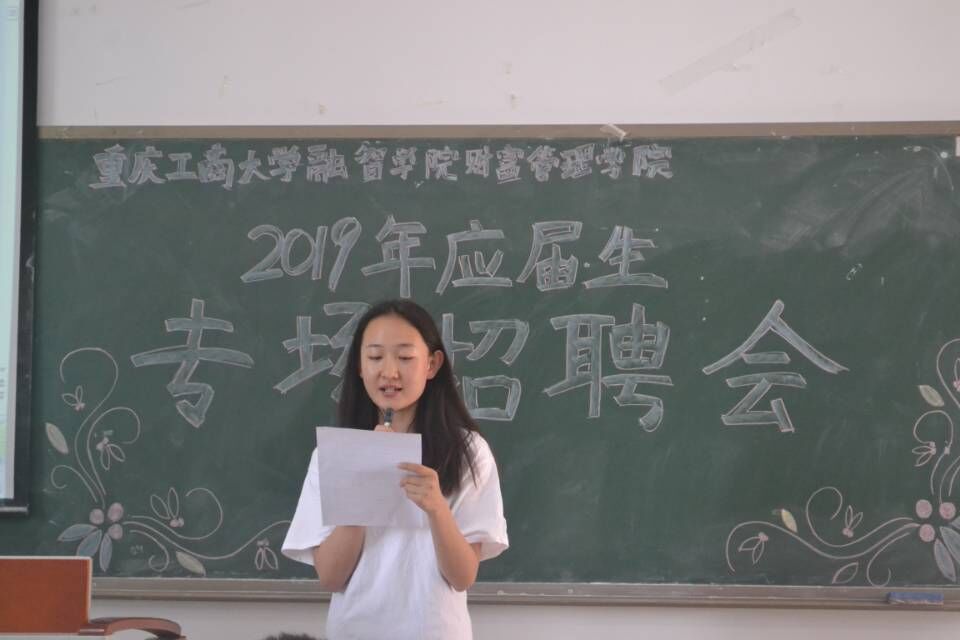 重庆工商大学融智学院财富管理学院
2019年应届生
专场招聘会